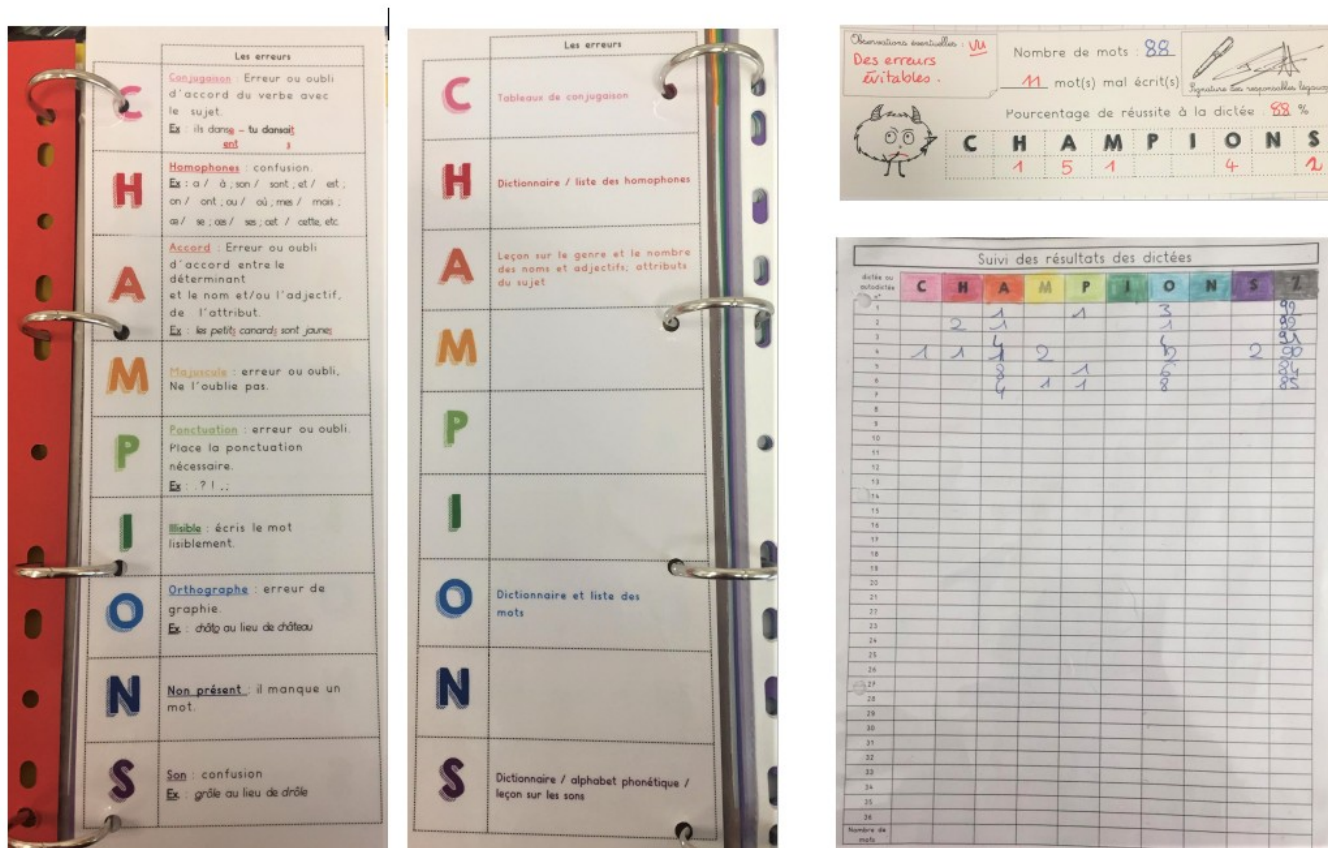 Les erreurs
C
Conjugaison : Erreur ou oubli
d'accord du verbe avec
le sujet.
Ex : ils danse – tu dansait
ent s
H
Homophones : confusion.
Ex : a / à ; son / sont ; et / est ;
on / ont ; ou / où ; mes / mais ;
ce / se ; ces / ses ; cet / cette, etc
A
Accord : Erreur ou oubli
d'accord entre le
déterminant
et le nom et/ou l'adjectif,
de l'attribut.
Ex : les petits canards sont jaunes
M
Majuscule : erreur ou oubli,
Ne l'oublie pas.
P
Ponctuation : erreur ou oubli.
Place la ponctuation
nécessaire.
Ex : . ? ! , ;
I
Illisible : écris le mot
lisiblement.
O
Orthographe : erreur de
graphie.
Ex : châto au lieu de château
N
Non présent : il manque un
mot.
S
Son : confusion
Ex : grôle au lieu de drôle
Les erreurs
C
Tableaux de conjugaison
H
Dictionnaire / liste des homophones
A
Leçon sur le genre et le nombre
des noms et adjectifs; attributs
du sujet
M
P
I
O
Dictionnaire et liste des
mots
N
S
Dictionnaire / alphabet phonétique /
leçon sur les sons
Observations éventuelles : vu
Des erreurs
évitables.
Nombre de mots : 88
11 mot(s) mal écrit(s)
Signature des responsables légaux
Pourcentage de réussite à la dictée : 88 %
C H A M P I O N S
1 5 1 4 2
Suivi des résultats des dictées
dictée ou
autodictée
n°
C H A M P I O N S Z
1 1 1 3 92
2 2 1 1 92
3 4 4 91
4 1 1 1 2 2 2 90
5 8 1 6 84
6 4 1 1 8 85
7
8
9
10
11
12
13
14
15
16
17
18
19
20
21
22
23
24
25
26
27
28
29
30
31
32
33
34
35
36
Nombre de
mots